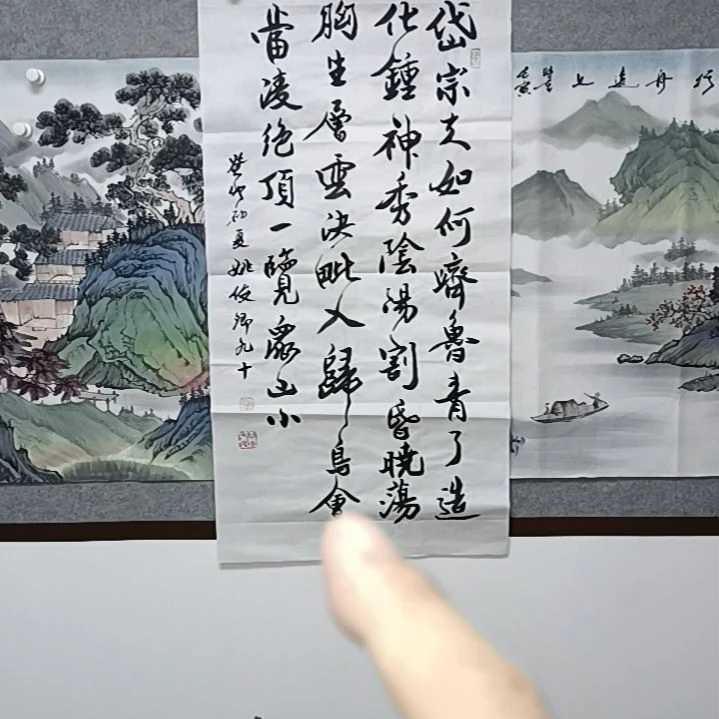 岱宗夫如何齊魯青了造
化鍾神秀陰陽割昏曉蕩
胸生層雲決眦入歸鳥會
當凌絕頂一覽眾山小
癸卯初夏姚俊卿九十